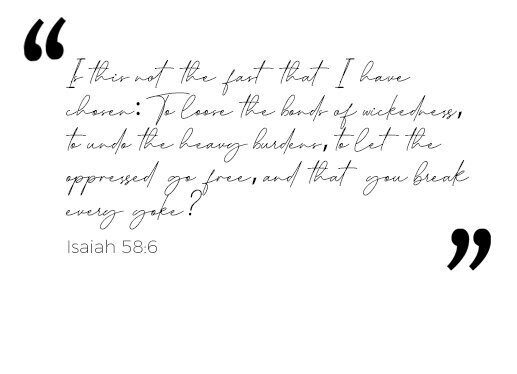 “
Is this not the fast that I have
chosen: To loose the bonds of wickedness,
to undo the heavy burdens, to let the
oppressed go free, and that you break
every yoke?
Isaiah 58:6
”